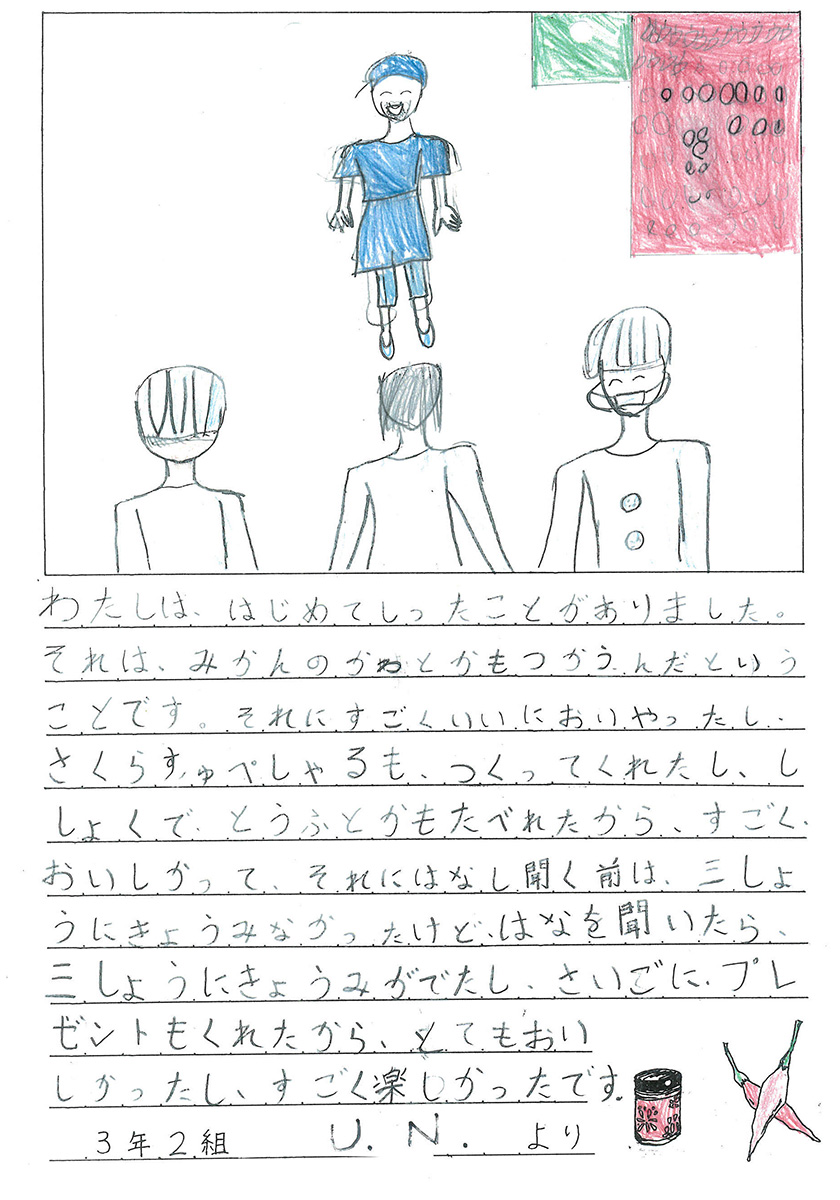 わたしは、はじめてしったことがありました。
それは、みかんのかわとかもつかうんだという
ことです。それにすごくいいにおいやったし、
さくらすゅぺしゃるも、つくってくれたし、し
しょくで、とうふとかもたべれたから、すごく、
おいしかって、それにはなし聞く前は、三しょ
うにきょうみなかったけど、はなを聞いたら、
三しょうにきょうみがでたし、さいごに、プレ
ゼントもくれたから、とてもおい
しかったし、すごく楽しかったです。
3年2組 U.N. より